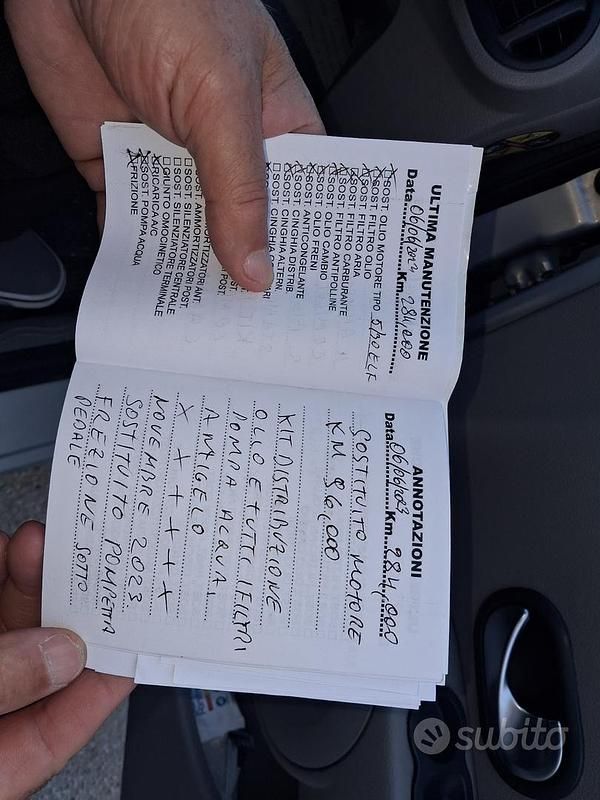 ULTIMA MANUTENZIONE
Data 06/06/2023 Km. 284,000
SOST. OLIO MOTORE TIPO 5/30 ELF
SOST. FILTRO OLIO
SOST. FILTRO ARIA
SOST. FILTRO CARBURANTE
SOST. FILTRO ANTIPOLLINE
SOST. OLIO CAMBIO
SOST. OLIO FRENI
SOST. ANTICONGELANTE
SOST. CINGHIA DISTRIB.
SOST. CINGHIA ALTERN.
SOST. CINGHIA
POST.
SOST. AMMORTIZZATORI ANT.
SOST. SILENZIATORE POST.
SOST. SILENZIATORE CENTRALE
GIUNTO OMOCINETICO
RICARICA A/C
SOST. POMPA ACQUA
FRIZIONE
ANNOTAZIONI
Data 06/06/2023 Km. 284,000
SOSTITUITO MOTORE
KM 86,000
KIT DISTRIBUZIONE
OLIO E TUTTI I FILTRI
POMPA ACQUA
ANTIGELO
X + + + + X
NOVEMBRE 2023
SOSTITUITO POMPETTA
FREZIONE SOTTO
PEDALE
subito